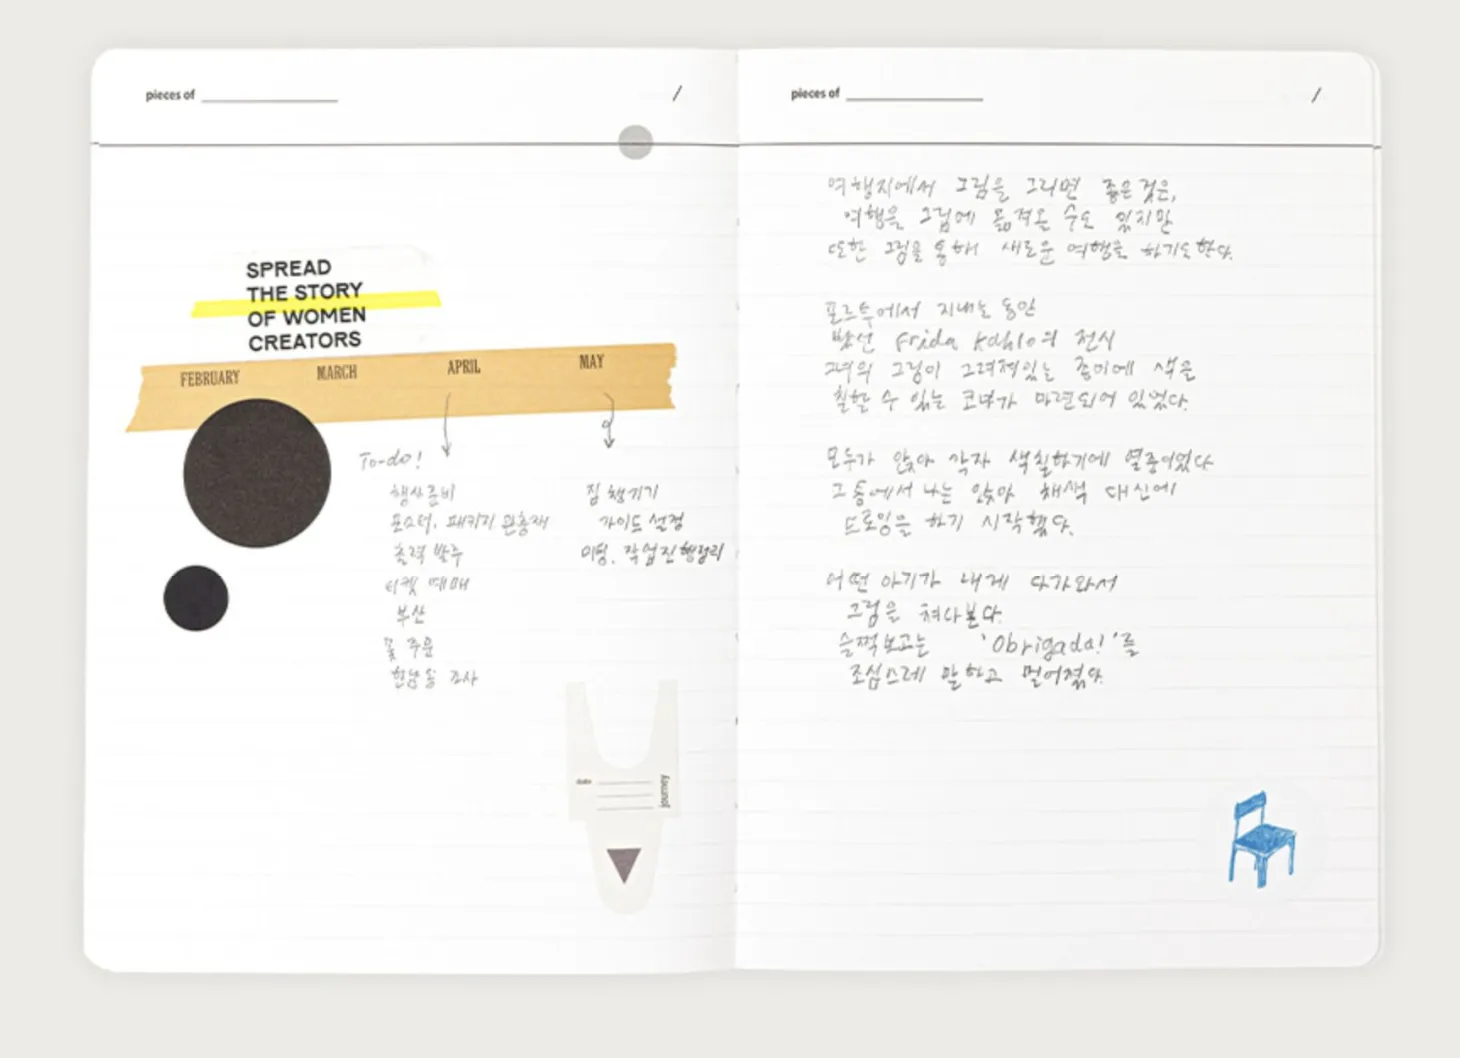 pieces of
/
SPREAD
THE STORY
OF WOMEN
CREATORS
FEBRUARY MARCH APRIL MAY
To-do!
행사준비
포스터, 패키지 관충재
출력 발주
티켓 예매
부산
꽃 주문
한남동 조사
짐 챙기기
가이드 설정
미팅, 작업진행정리
date
journey
pieces of
/
여행지에서 그림을 그리면 좋은 것은,
여행을 그림에 옮겨올 수도 있지만
또한 그림을 통해 새로운 여행을 하기도 한다.
포르투에서 지내는 동안
봤던 Frida Kahlo의 전시
그녀의 그림이 그려져있는 종이에 색을
칠할 수 있는 코너가 마련되어 있었다.
모두가 앉아 각자 색칠하기에 열중이었다
그 중에서 나는 앉아 채색 대신에
드로잉을 하기 시작했다.
어떤 아기가 내게 다가와서
그림을 쳐다본다.
슬쩍보고는 'Obrigada!'를
조심스레 말하고 멀어졌다.